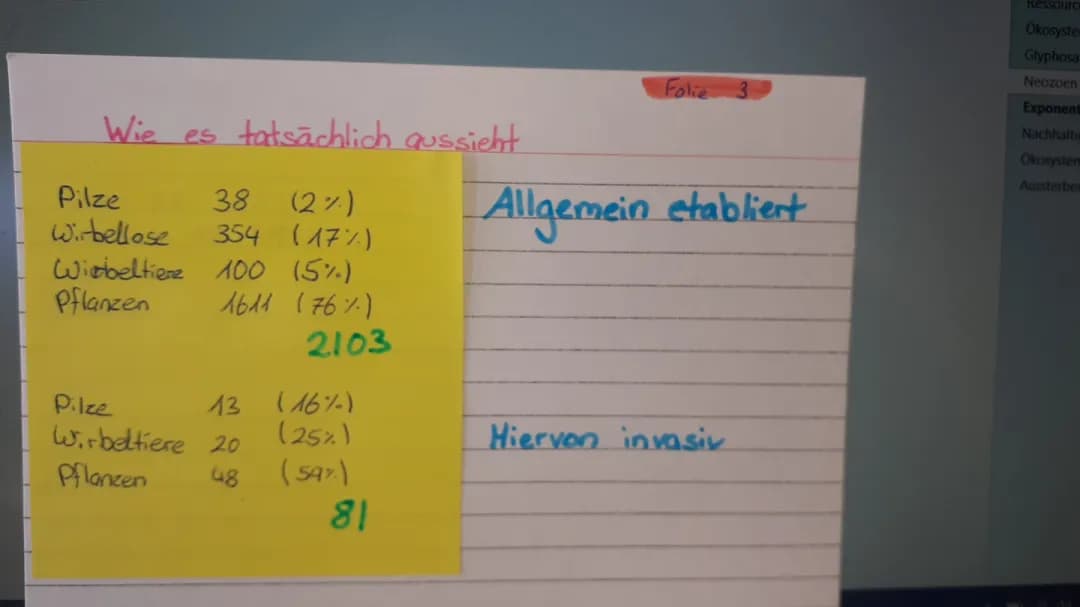 Ressourc
Ökosyste
Glyphosa
Neozoen
Exponent
Nachhalt
Ökosysten
Aussterbe
Folie 3
Wie es tatsächlich aussieht
Pilze 38 (2%)
Wirbellose 354 (17%)
Wirbeltiere 100 (5%)
Pflanzen 1611 (76%)
2103
Allgemein etabliert
Pilze 13 (16%)
Wirbeltiere 20 (25%)
Pflanzen 48 (59%)
81
Hiervon invasiv